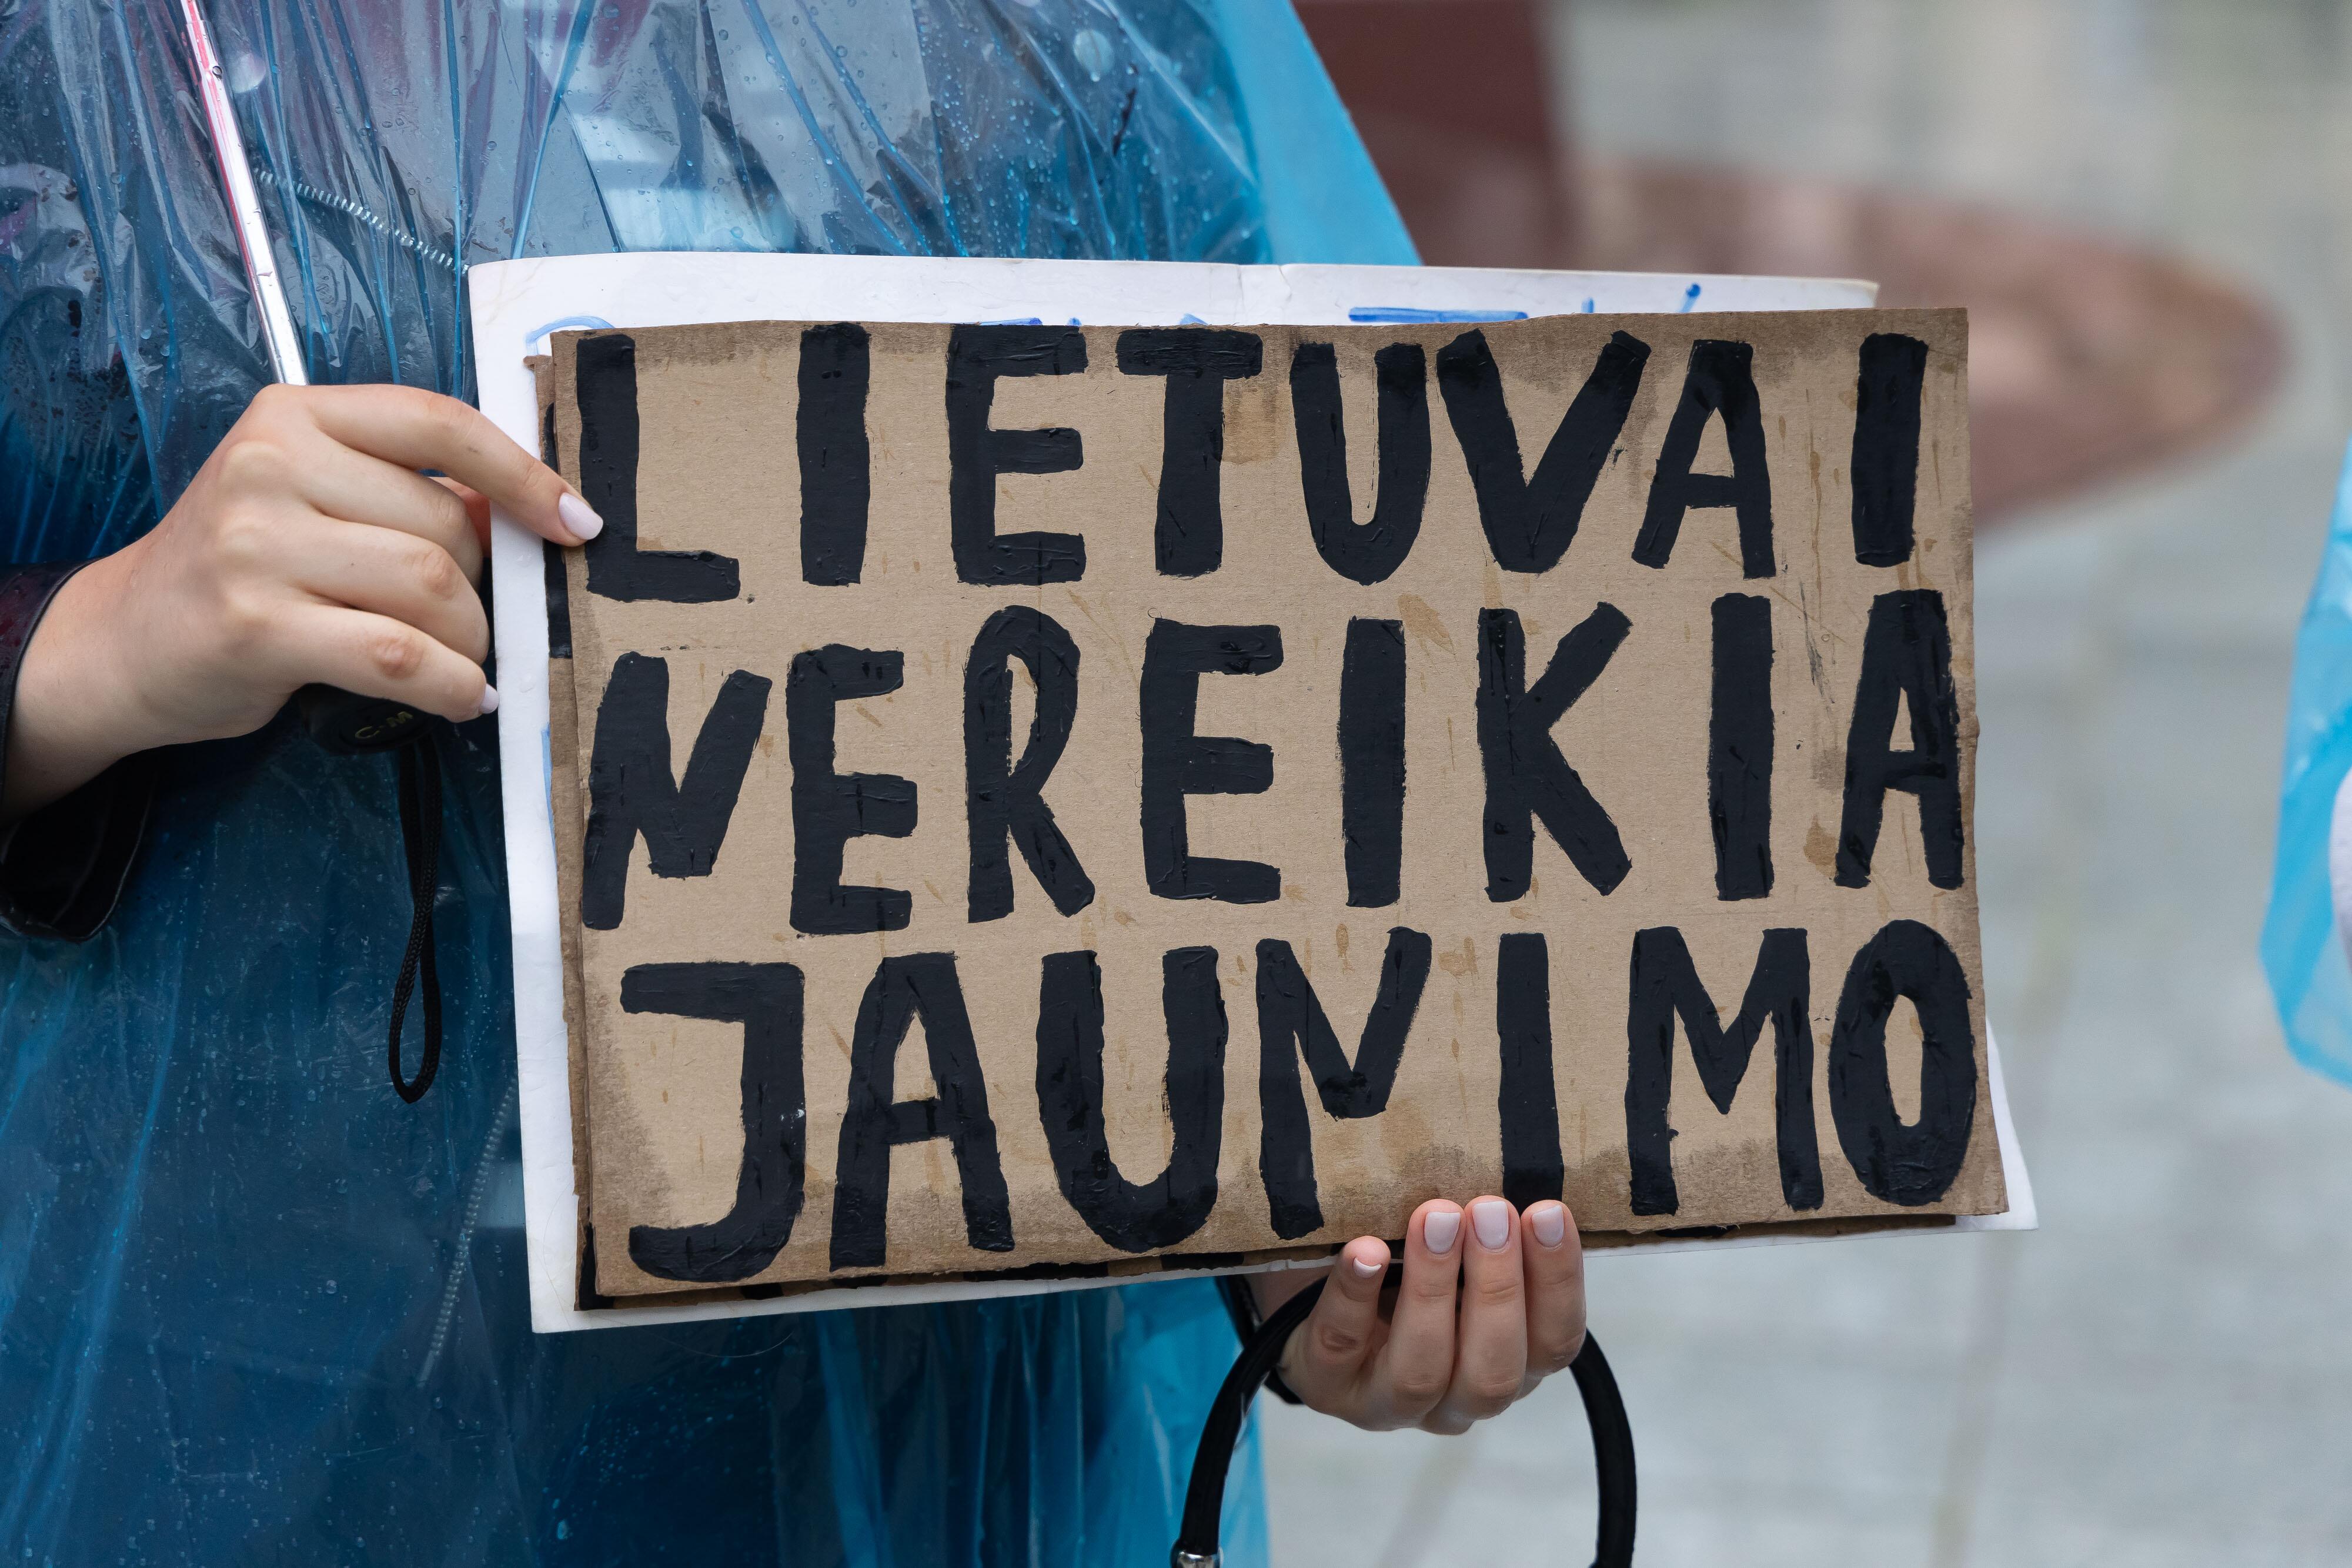 LIETUVAI
NEREIKIA
JAUNIMO
C-M